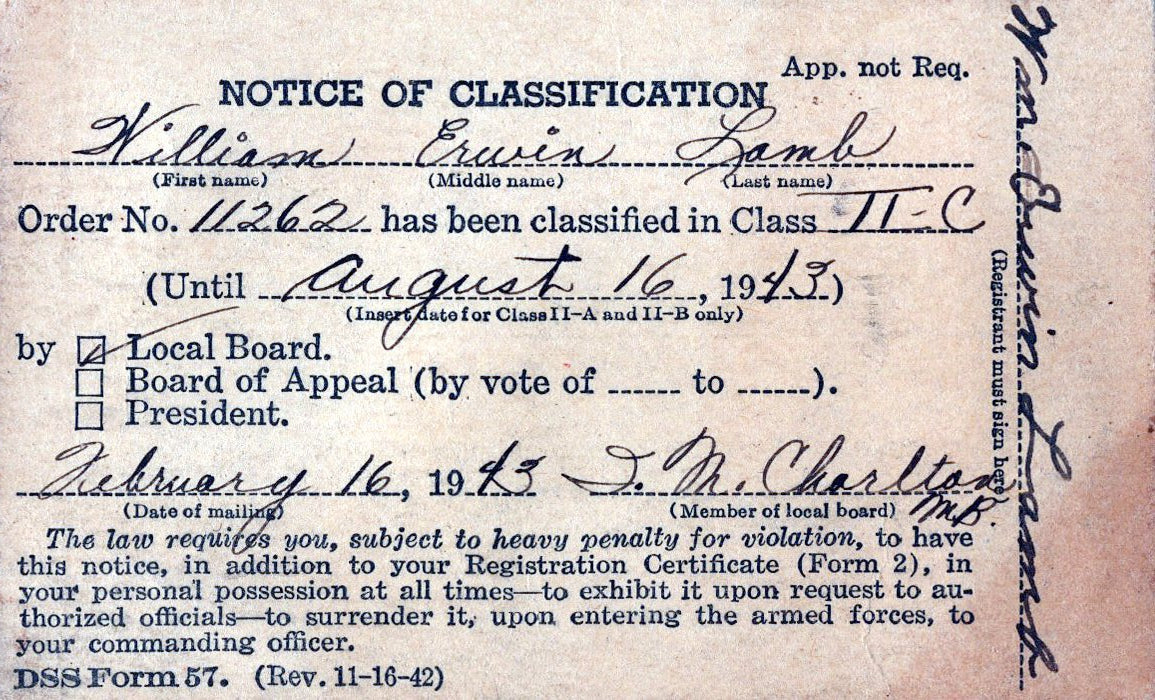 App. not Req.
NOTICE OF CLASSIFICATION
William Erwin Lamb
(First name) (Middle name) (Last name)
Order No. 11262 has been classified in Class II-C
(Until August 16, 1943)
(Insert date for Class II-A and II-B only)
by Local Board.
Board of Appeal (by vote of ...... to ......).
President.
February 16, 1943 I. M. Charlton
(Date of mailing) (Member of local board) M.B.
The law requires you, subject to heavy penalty for violation, to have
this notice, in addition to your Registration Certificate (Form 2), in
your personal possession at all times—to exhibit it upon request to au-
thorized officials—to surrender it, upon entering the armed forces, to
your commanding officer.
DSS Form 57. (Rev. 11-16-42)
(Registrant must sign here)
Wm Erwin Lamb